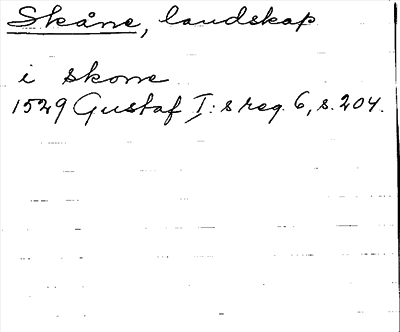 Skåne, landskap
i skone
1529 Gustaf I:s reg. 6, s. 204.